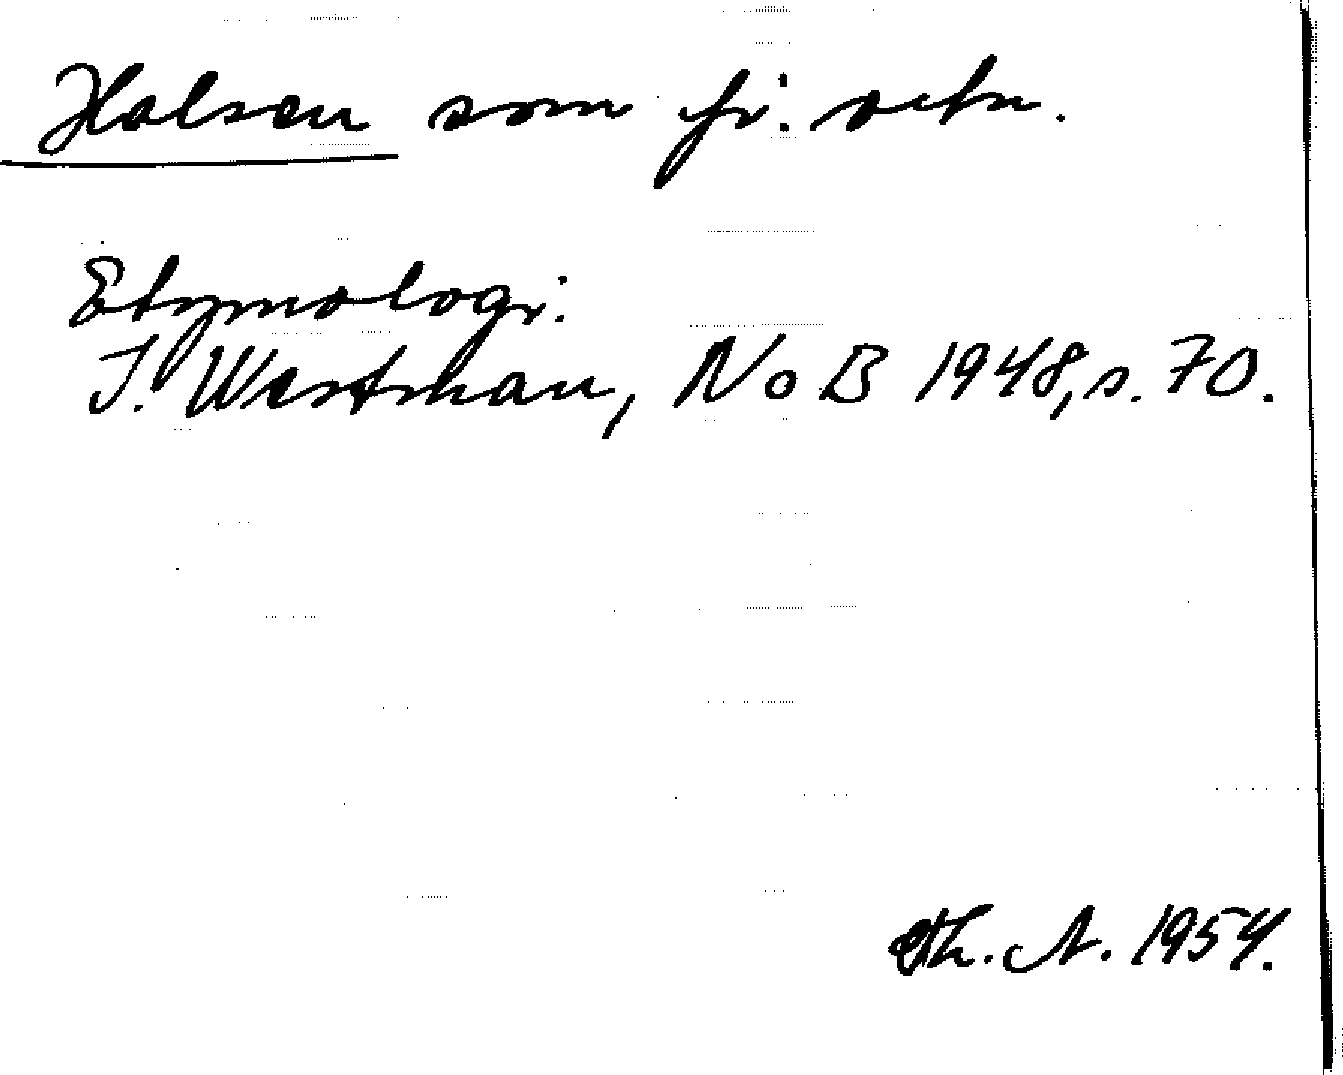 Halsen som fr: ortn.
Etymologi:
I. Westman, NoB 1948, s. 70.
Th. A. 1954.